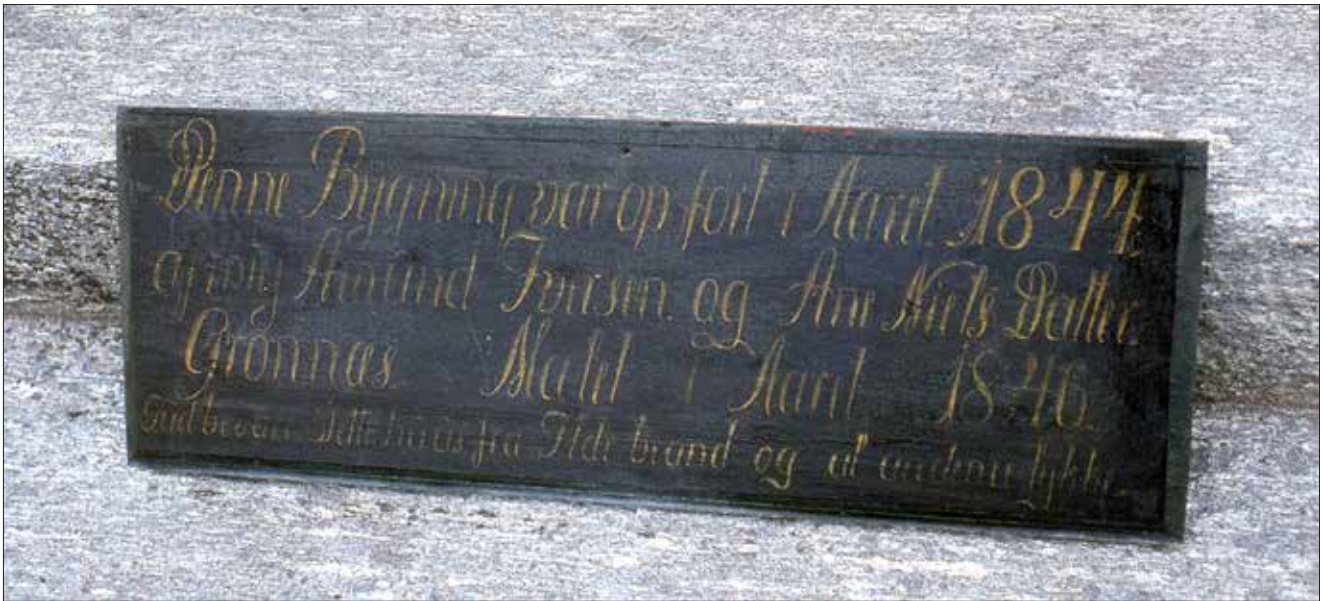 Denne Bygning var op ført i Aaret 1844
af mig Amund Iversen og Ane Niels Datter
Grønnæs Malet i Aaret 1846
Gud bevare dette huus fra Ilde brand og al anden u lykke